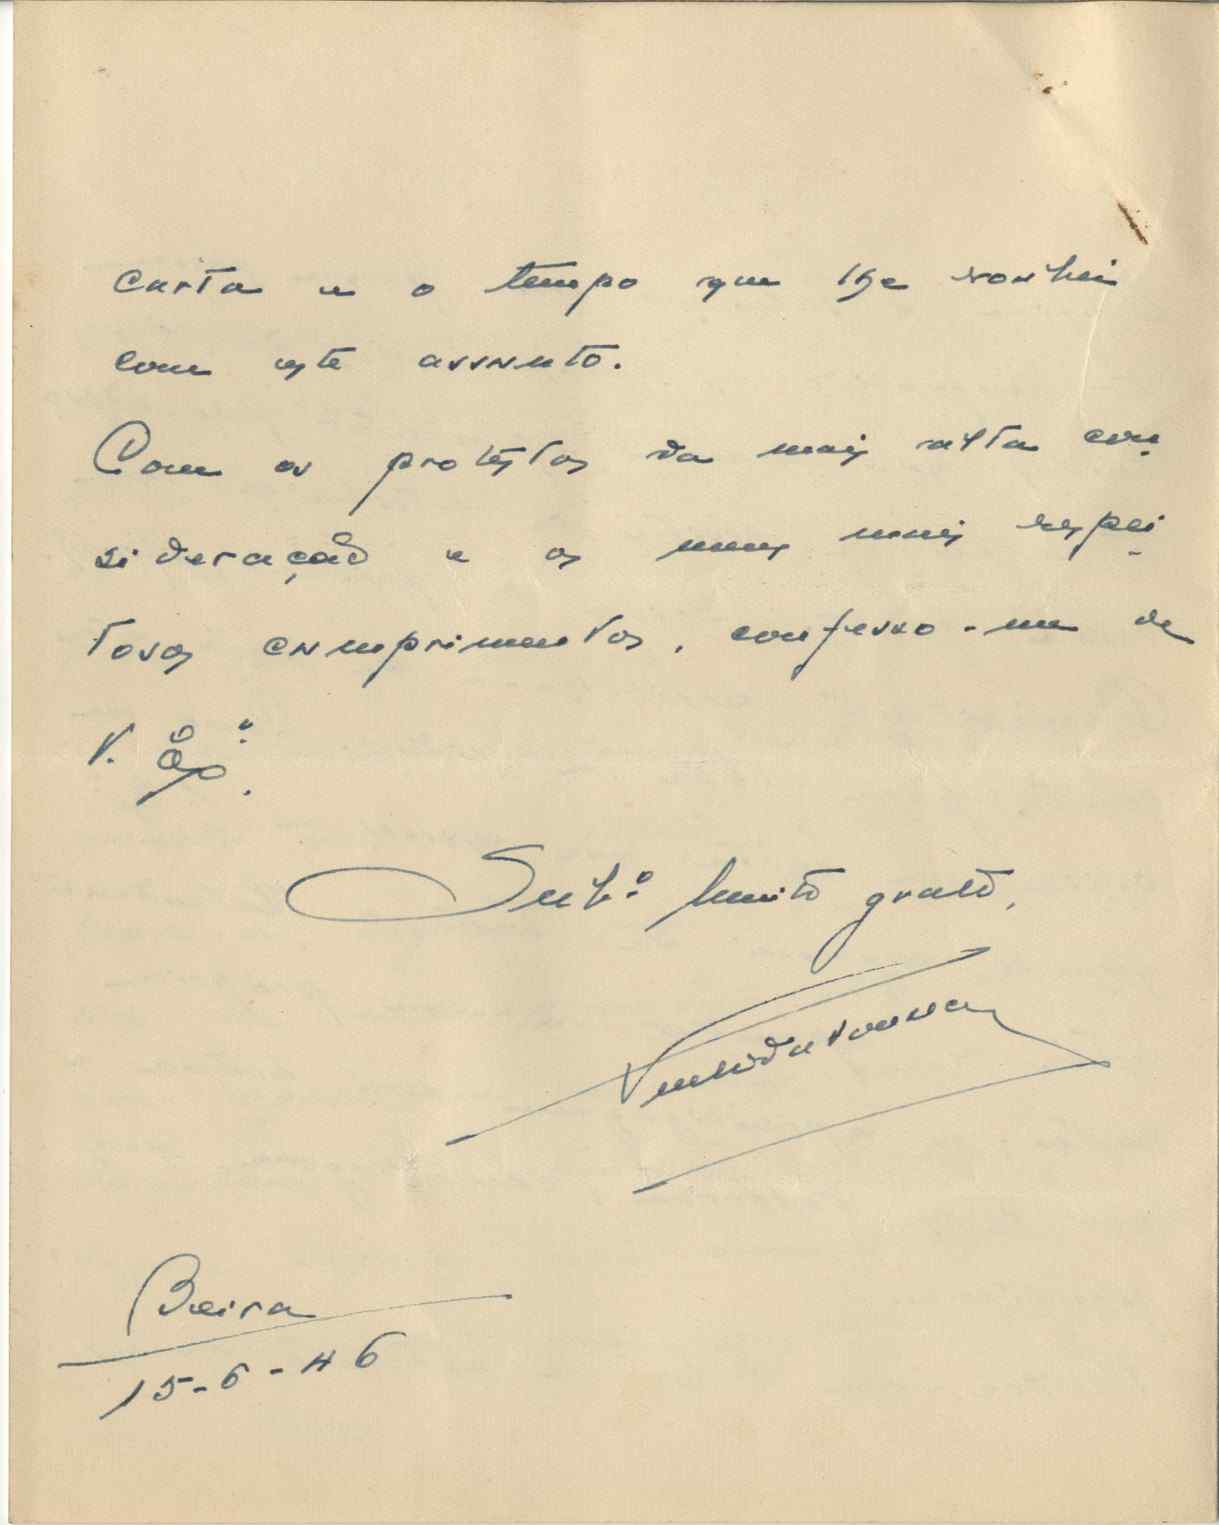 carta e o tempo que lhe roubei
com este assunto.
Com os protestos da mais alta con-
sideração e os meus mais respei-
tosos cumprimentos, confesso-me de
V. Exª.
muito grato,
Beira
15-6-46